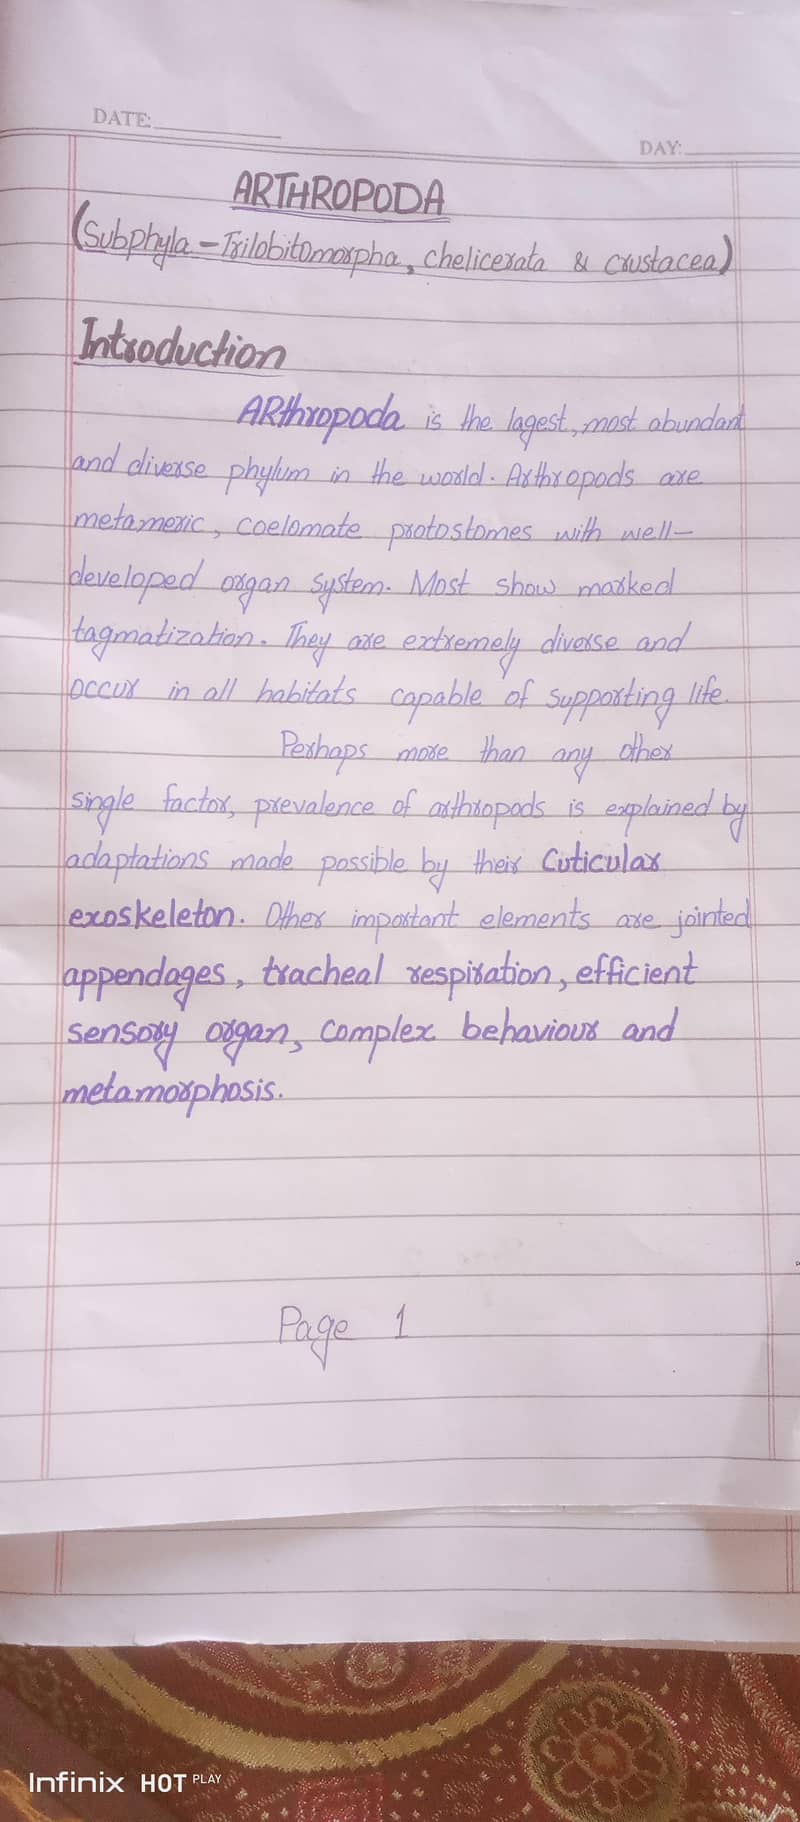 DATE:
DAY:
ARTHROPODA
(Subphyla - Trilobitomorpha, Chelicerata & Crustacea)
Introduction
ARthropoda is the lagest, most abundant
and diverse phylum in the world. Arthropods are
metameric, coelomate protostomes with well-
developed organ system. Most show marked
tagmatization. They are extremely diverse and
occur in all habitats capable of supporting life.
Perhaps more than any other
single factor, prevalence of arthropods is explained by
adaptations made possible by their Cuticular
exoskeleton. Other important elements are jointed
appendages, tracheal respiration, efficient
sensory organ, complex behaviour and
metamorphosis.
Page 1
Infinix HOT PLAY